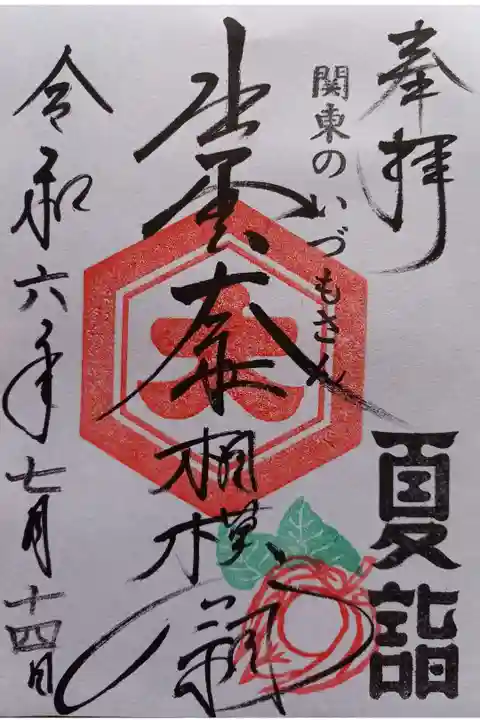 奉拝
夏詣
関東のいづもさん
出雲大社相模分祠
大
令和六年七月十四日